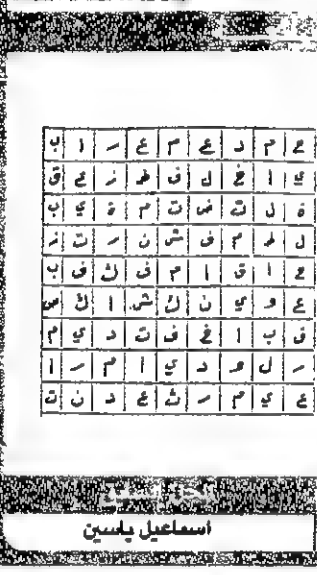 ح م د ع م ع ر ا ب
ي ا خ ل ف ط ز ع ق
ة ل ت ض ت م ة ي ب
ل ط م ف ش ن ر ت ز
ح ا ق ا م ف ك ف ب
ع و ي ن ك ش ا ك ص
ف ب ا خ ف ت د ي م
ر ل و د ي ا م ر ا
ع ي م ر ث ع د ن ت
اسماعيل ياسين